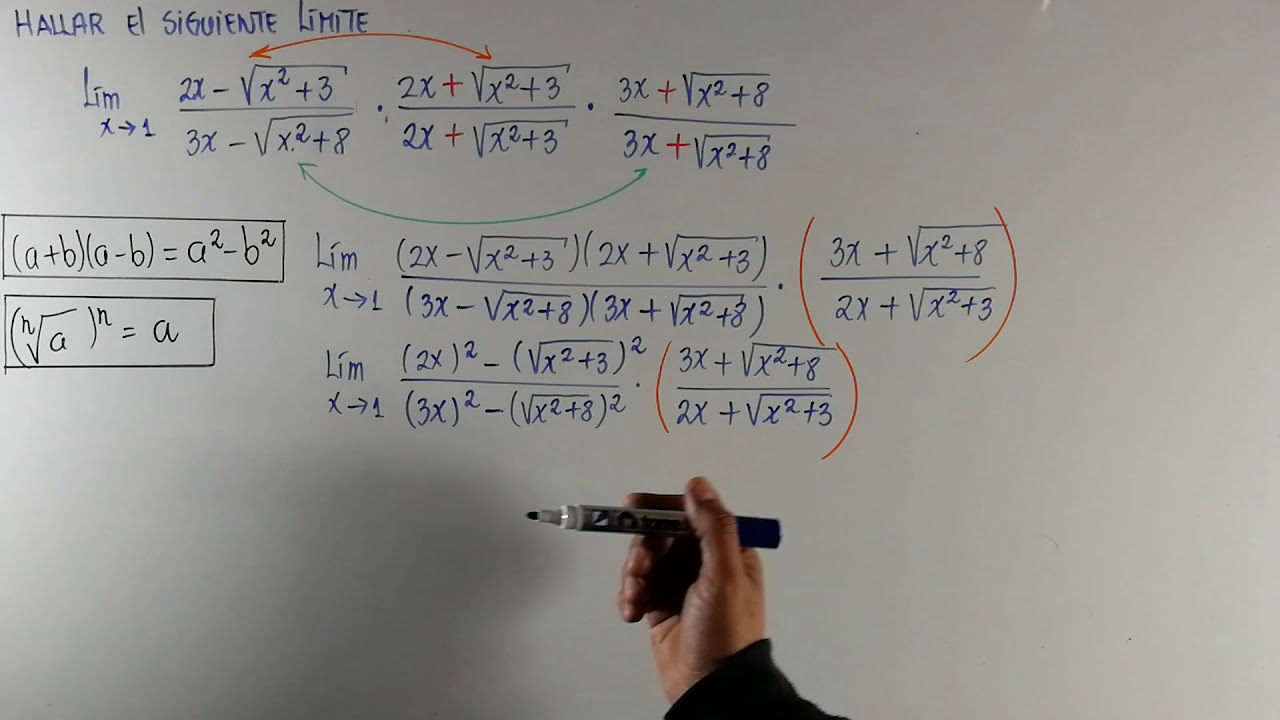 HALLAR El SIGUIENTE LÍMITE
Lím x→1 (2x − √(x² + 3))/(3x − √(x² + 8)) · (2x + √(x² + 3))/(2x + √(x² + 3)) · (3x + √(x² + 8))/(3x + √(x² + 8))
(a+b)(a-b) = a² - b²
(ⁿ√a)ⁿ = a
Lím x→1 ((2x − √(x² + 3))(2x + √(x² + 3)))/((3x − √(x² + 8))(3x + √(x² + 8))) · ((3x + √(x² + 8))/(2x + √(x² + 3)))
Lím x→1 ((2x)² − (√(x² + 3))²)/((3x)² − (√(x² + 8))²) · ((3x + √(x² + 8))/(2x + √(x² + 3)))